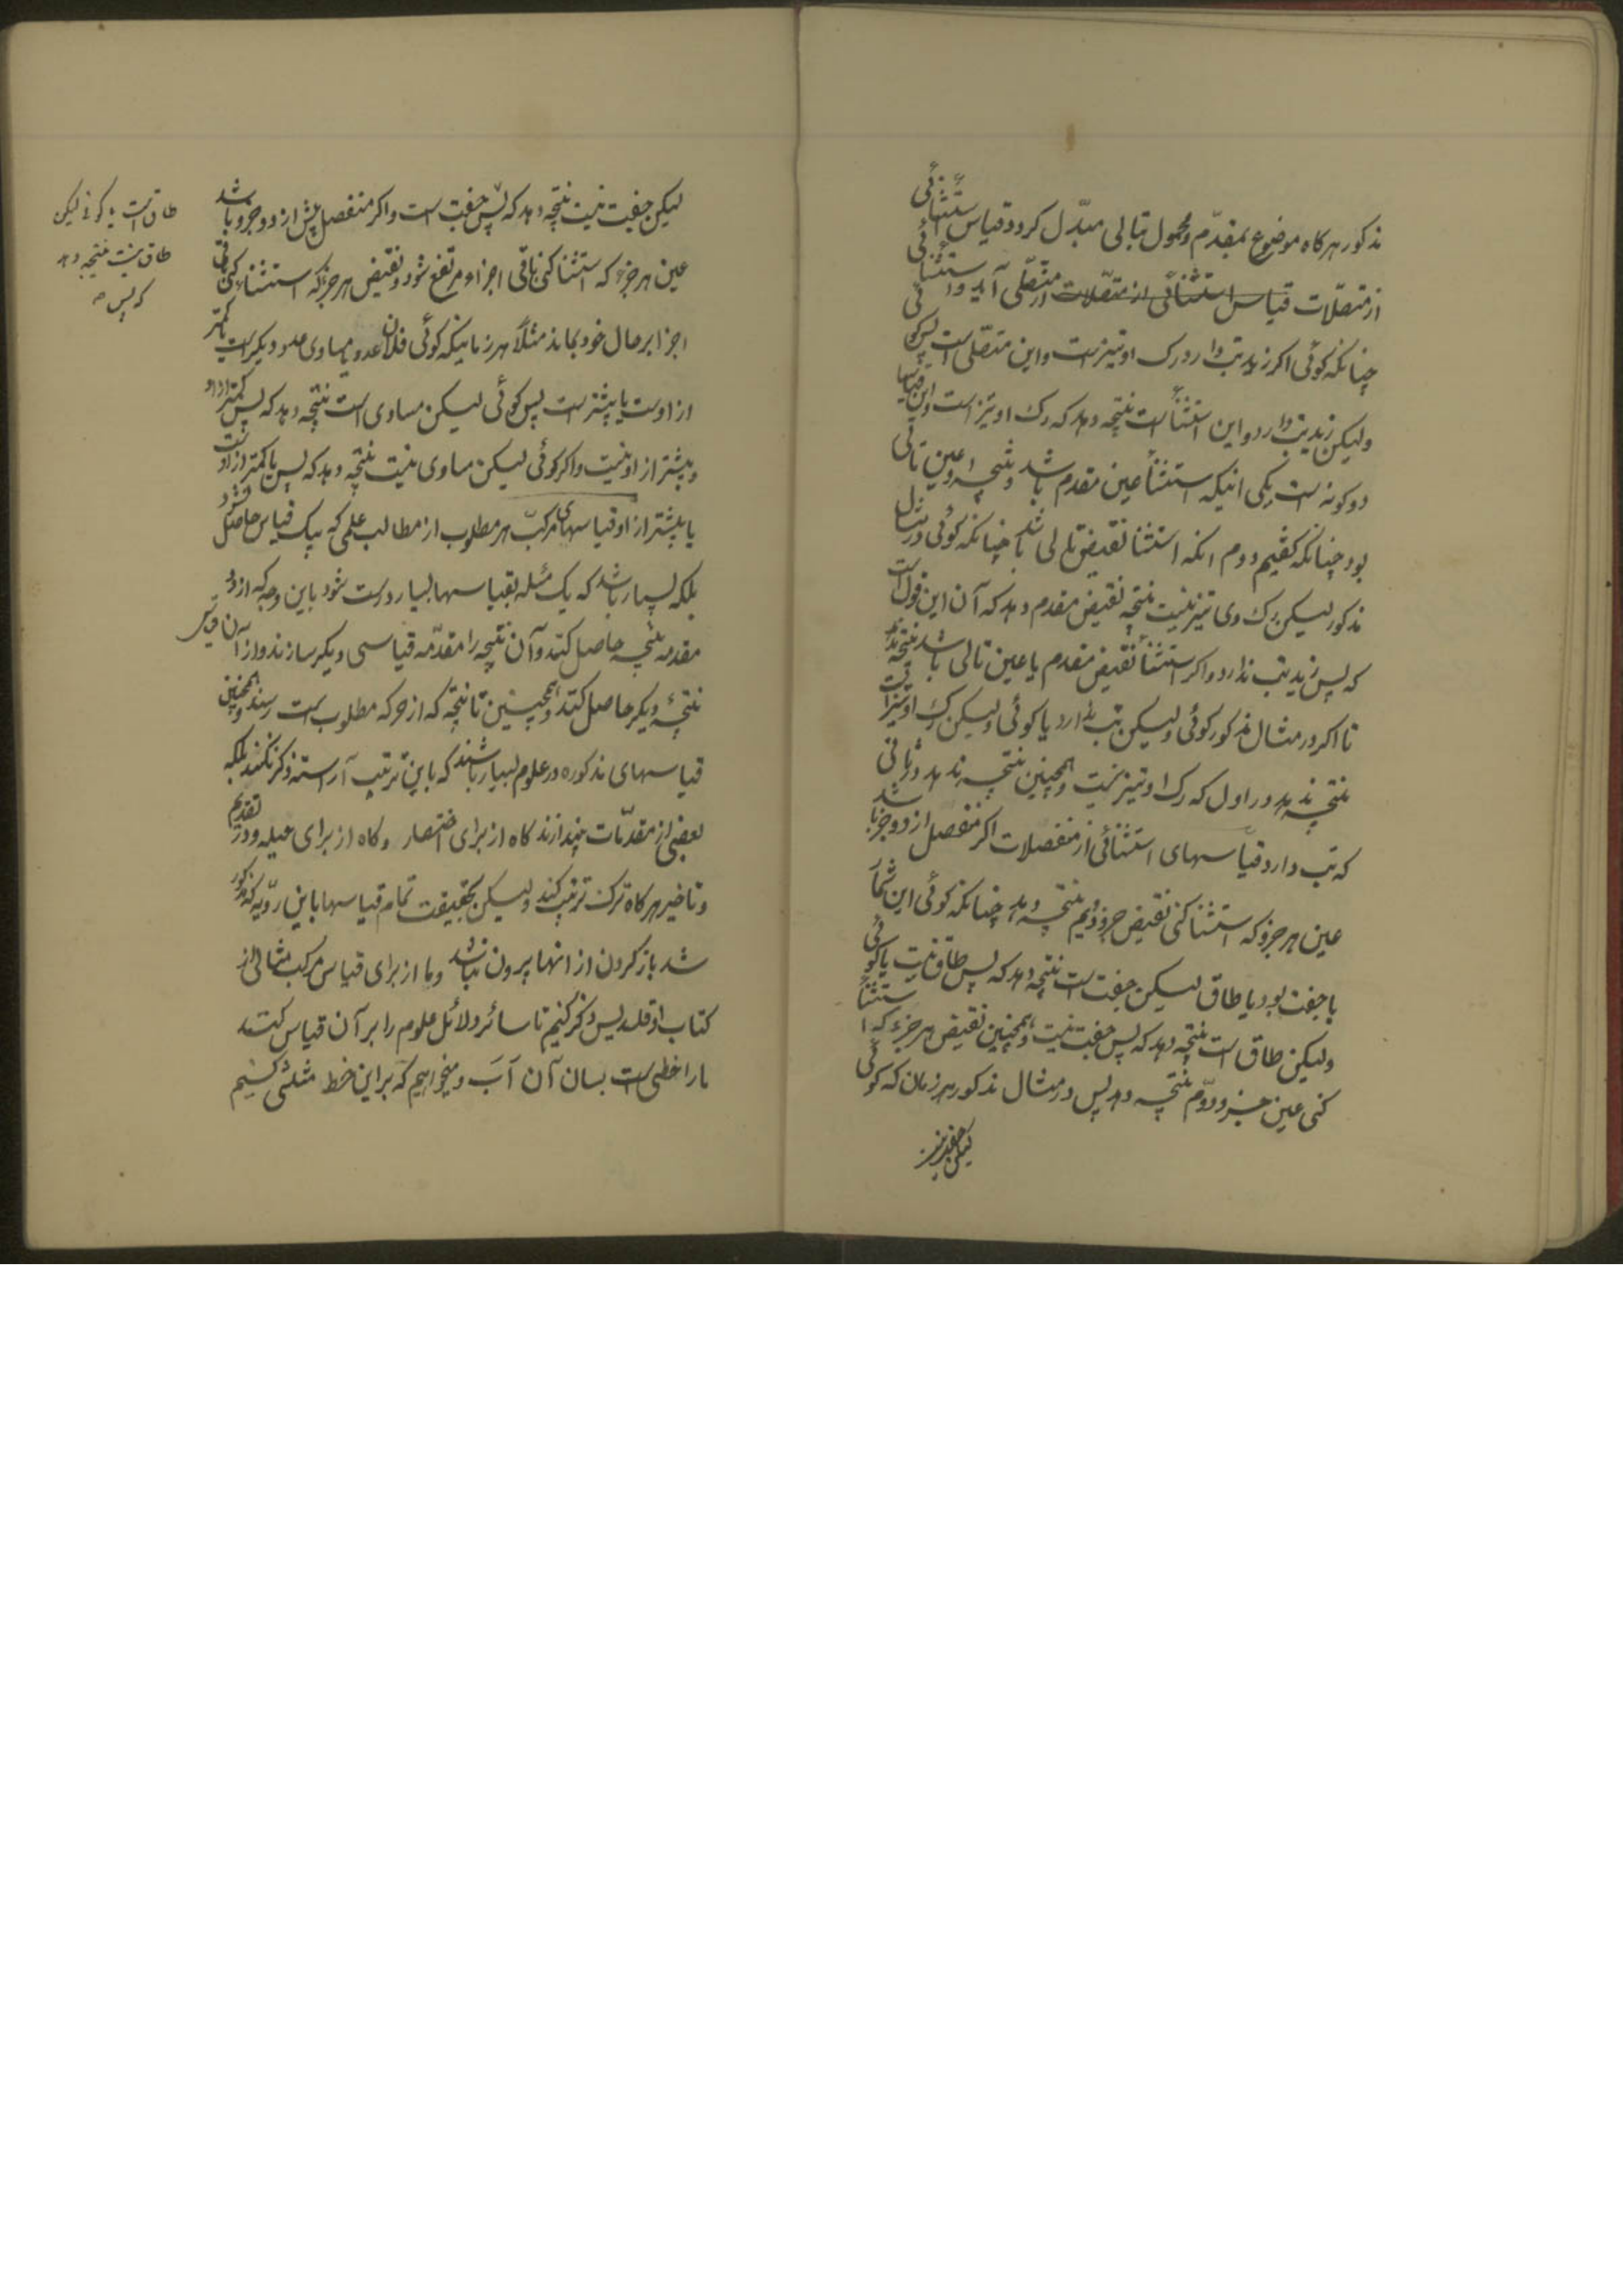 مذکور هرکاه موضوع بمقدّم و محمول بتالی مبدّل کردد قیاس استثنائی
از متصّلات قیاس استثنائی از متصّلات از متصّلی آید و استثنائی
چنانکه کوئی اکر زید تب دارد رک او تیزست و این متصّلی است پس کو
ولیکن زید تب دارد و این استثنأ است نتیجه دهد که رک او تیز است و این قیاسها
دو کونه است یکی انیکه استثنأ عین مقدم باشد و نتیجه عین تالی
بود چنانکه کفتیم دوم انکه استثنا نقیض تالی باشد چنانکه کوئی در مثال
مذکور لیکن رک وی تیز نیست نتیجه نقیض مقدم دهد که آن این قول است
که پس زید تب ندارد و اکر استثنأ نقیض مقدم یا عین تالی باشد نتیجه ندهد
تا اکر در مثال مذکور کوئی ولیکن تب ندارد یا کوئی ولیکن رک او تیز است
نتیجه ندهد در اول که رک او تیز نیست و همچنین نتیجه ندهد در ثانی
که تب دارد و قیاسهای استثنائی از منفصلات اکر منفصل از دو جزء باشد
عین هر جزو که استثنا کنی نقیض جزو دویم نتیجه دهد چنانکه کوئی این شمار
یا جفت بود یا طاق لیکن جفت است نتیجه دهد که پس طاق نیست یا کوئی
ولیکن طاق است نتیجه دهد که پس جفت نیست و همچنین نقیض هر جزء که استثنا
کنی عین جزو دوّم نتیجه دهد پس در مثال مذکور هر زمان که کوئی
لیکن جفت نیست نتیجه دهد که پس جفت است و اکر منفصل بیش از دو جزو باشد
عین هر جزء که استثنا کنی باقی اجزاء مرتفع شود و نقیض هر جزء که استثناء کنی باقی
اجزا بر حال خود بماند مثلاً هر زمانیکه کوئی فلان عدد یا مساوی عدد دیکر است یا کمتر
از اوست یا بیشتر است پس کوئی لیکن مساوی است نتیجه دهد که پس کمتر از او
و بیشتر از او نیست و اکر کوئی لیکن مساوی نیست نتیجه دهد که پس یا کمتر از اوست
یا بیشتر از او قیاسهای مرکبّ هر مطلوب از مطالب علمی که بیک قیاس حاصل نشود
بلکه بسیار باشد که یک مسئله بقیاسهای بسیار درست شود باین وجه که از دو
مقدمه نتیجه حاصل کنند و آن نتیجه را مقدّمه قیاسی دیکر سازند و از آن قیاس
نتیجهٔ دیکر حاصل کنند و همچنین تا نتیجه که از حرکه مطلوب است رسند و همچنین
قیاسهای مذکوره در علوم بسیار باشند که باین ترتیب آراسته ذکر نکنند بلکه
بعضی از مقدّمات بیندازند کاه از برای اختصار و کاه از برای حیله و در تقدیم
و تاخیر هرکاه ترک ترتیب کنند ولیکن بحقیقت تمام قیاسها باین رویّه که مذکور
شد باز کردن از انها بیرون نباشد و ما از برای قیاس مرکب مثالی از
کتاب اوقلیدیس ذکر کنیم تا سائر دلائل علوم را بر آن قیاس کنند
ما را خطی است بسان آن آبَ و میخواهیم که بر این خط مثلثی کشیم
طاق است یا کوئی لیکن
طاق نیست نتیجه دهد
که پس